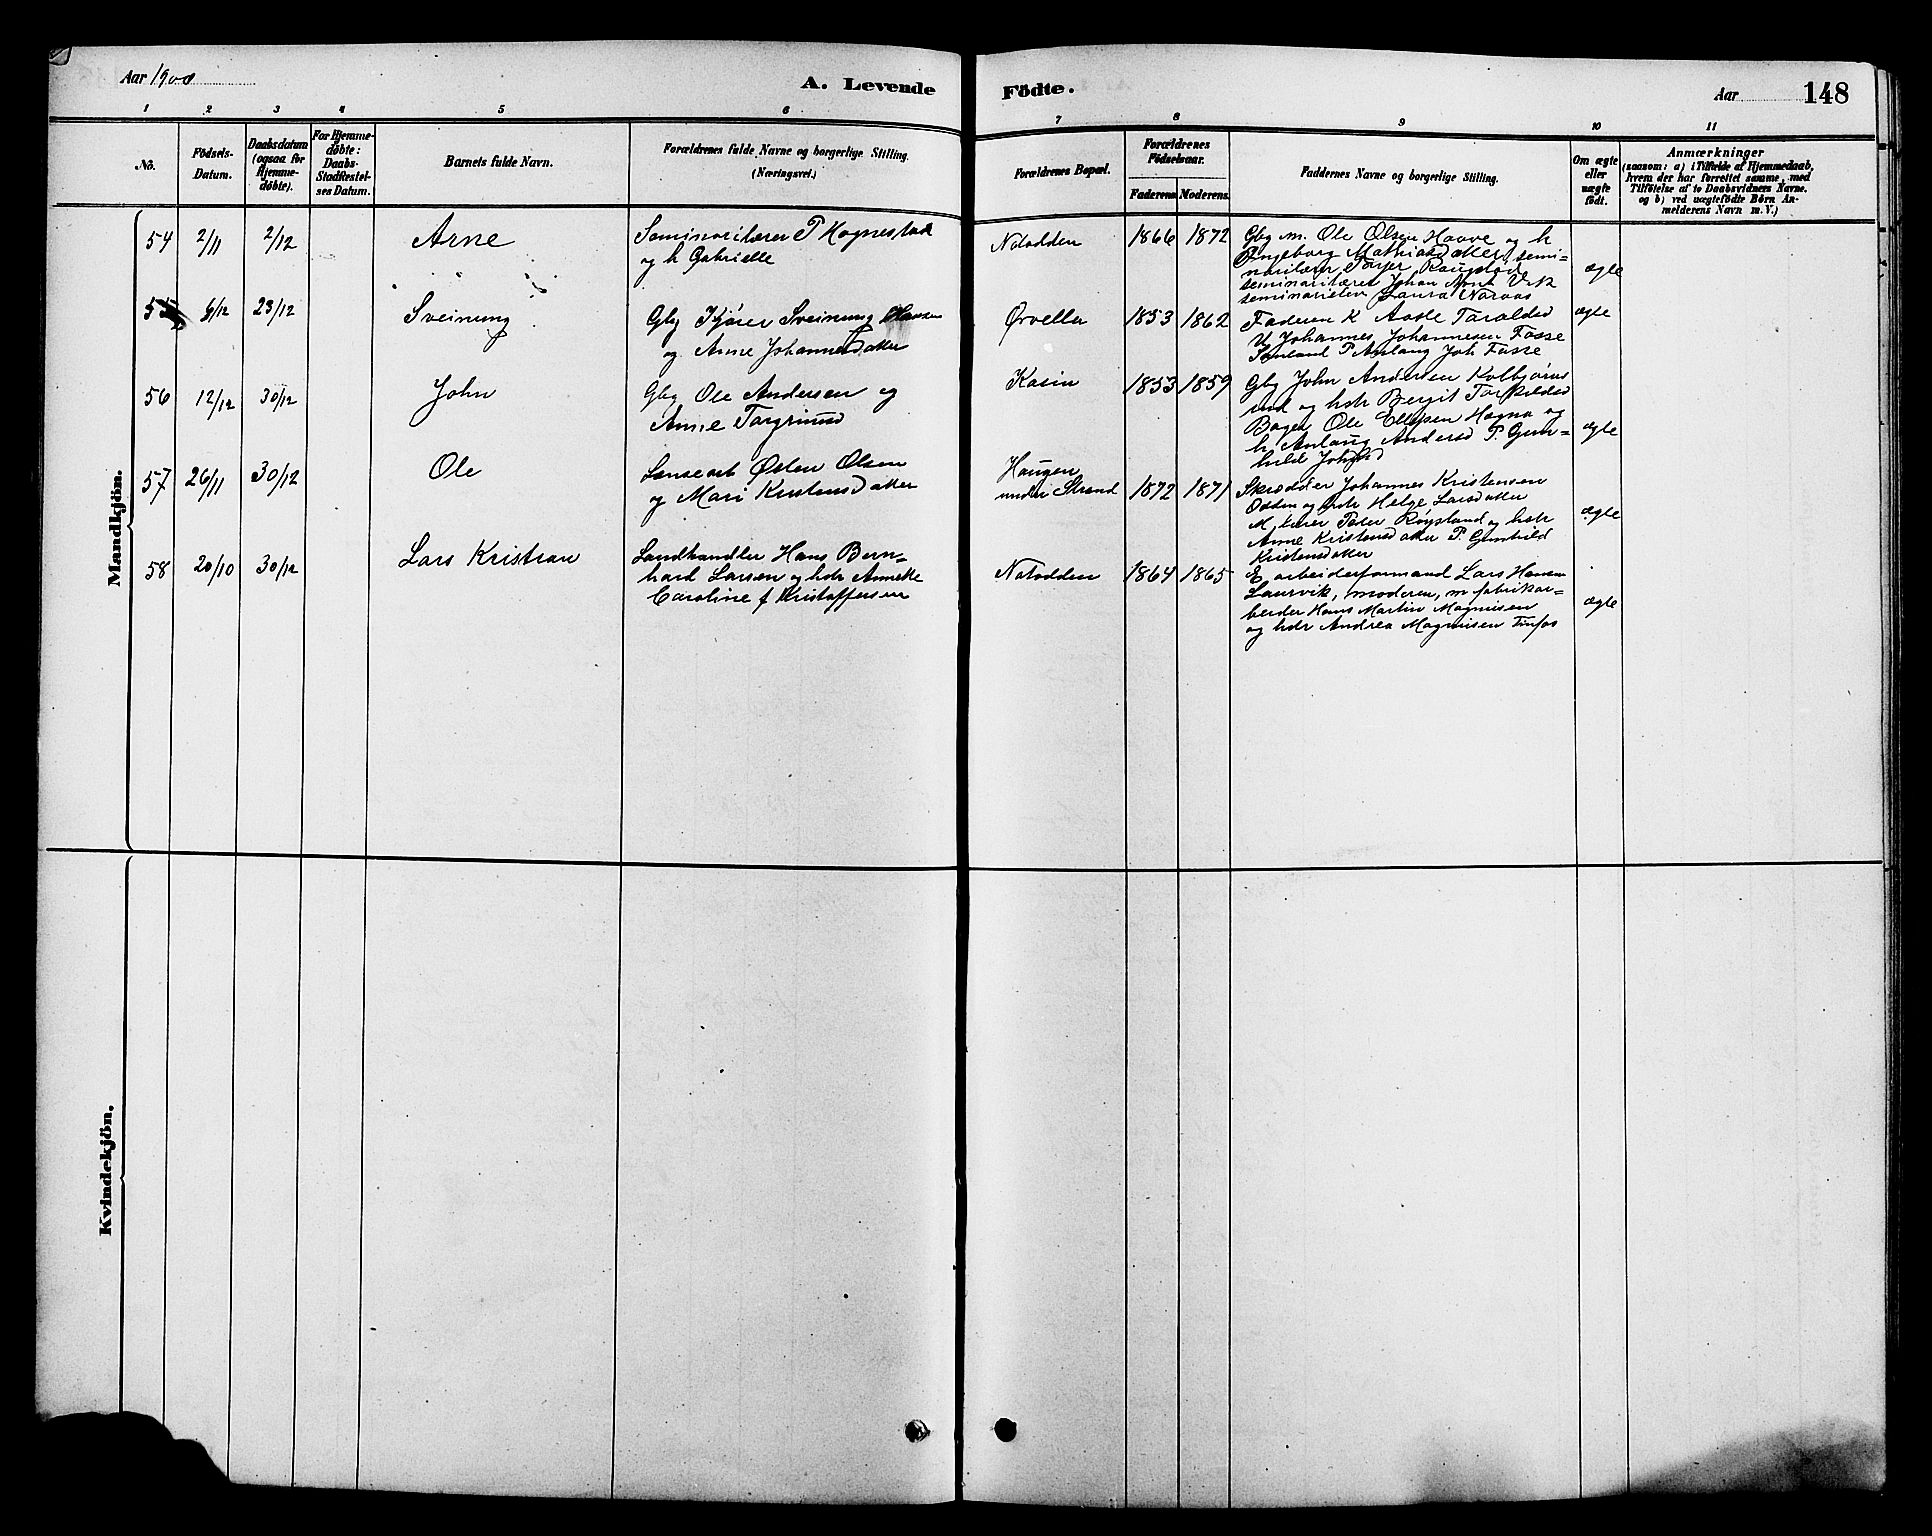 Aar 1900
A. Levende
Födte.
Aar
148
1
2
3
4
5
6
7
8
9
10
11
No.
Födsels-
Datum.
Daabsdatum
(ogsaa for
Hjemme-
döbte).
For Hjemme-
döbte:
Daabs-
Stadfæstel-
ses Datum.
Barnets fulde Navn.
Forældrenes fulde Navne og borgerlige Stilling.
(Næringsvei.)
Forældrenes Bopæl.
Forældrenes
Födselsaar.
Faderens.
Moderens.
Faddernes Navne og borgerlige Stilling.
Om ægte
eller
uægte
födt.
Anmærkninger
(saasom: a) i Tilfælde af Hjemmedaab,
hvem der har forrettet samme, med
Tilföielse af to Daabsvidners Navne.
og b) ved uægtefödte Börn An-
melderens Navn m. V.)
Mandkjön.
54
2/11
2/12
Arne
Seminarilærer P Hognestad
og h Gabrielle
Notodden
1866
1872
Gbg m. Ole Olsen Haave og h
Ingeborg Mathiasdatter, semi-
narilærer Torjer Raugstad
seminarilærer Johan Arnt Vik
seminaristen Laura Naraas
ægte
55
6/12
23/12
Sveinung
Gbg Kjører Sveinung Hansen
og Anne Johannesdatter
Ørvella
1853
1862
Faderen K Aasle Taraldsd
U Johannes Johannesen Fosse
P Anlaug Joh Fosse
ægte
56
12/12
30/12
John
Gbg Ole Andersen og
Anne Torgrimsd
Kasin
1853
1859
Gbg John Andersen Kolbjørns
rud og hstr Bergit Torkildsd
Bager Ole Ellefsen Hogna og
h Anlaug Andersd P. Gun-
hild Johnsd
ægte
57
26/11
30/12
Ole
Østen Olsen
og Mari Kristensdatter
Haugen
under Strand
1872
1871
Skrædder Johannes Kristensen
Odden og hstr Helge Larsdatter
M, lærer Peter Røysland og hstr
Anne Kristensdatter P Gunhild
Kristensdatter
ægte
58
20/10
30/12
Lars Kristian
Landhandler Hans Bern-
hard Larsen og hstr Annette
Caroline f Kristoffersen
Notodden
1864
1865
E arbeiderformand Lars Hansen
Laurvik, moderen, m fabrikar-
beider Hans Martin Magnusen
og hstr Andrea Magnusen Tinfos
ægte
Kvindekjön.